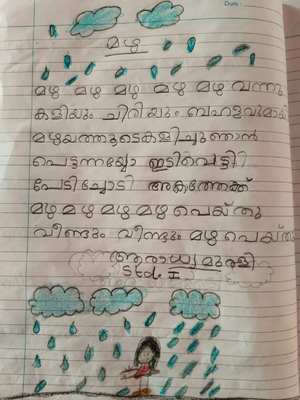 Date :
മഴ
മഴ മഴ മഴ മഴ മഴ വന്നു
കളിയും ചിരിയും ബഹളവുമായി
മഴയത്തൂടെകളിച്ചുഞാൻ
പെട്ടന്നയ്യോ ഇടിവെട്ടി
പേടിച്ചോടി അകത്തേക്ക്
മഴ മഴ മഴ മഴ പെയ്തു
വീണ്ടും വീണ്ടും മഴ പെയ്തു
ആരാധ്യമുരളി
Std. I